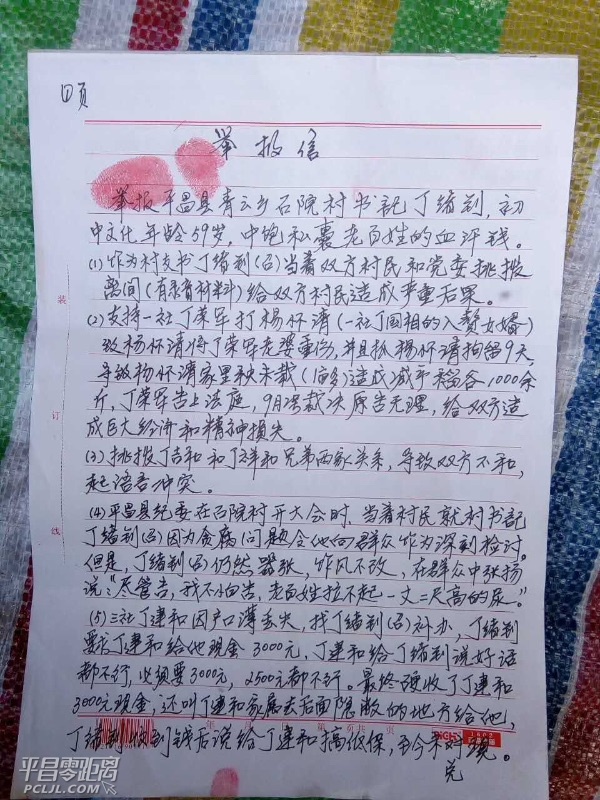 四页
举报信
举报平昌县青云乡石院村书记丁绪剀,初
中文化年龄59岁,中饱私囊老百姓的血汗钱。
(1)作为村支书丁绪剀(召)当着双方村民和党委挑拨
离间(有录音材料)给双方村民造成严重后果。
(2)支持一社丁荣军打杨怀清(一社丁国相的入赘女婿)
致杨怀清将丁荣军老婆重伤,并且抓杨怀清拘留9天,
导致杨怀清家里秧未栽(10多)造成减产稻谷1000余
斤,丁荣军告上法庭,9月法裁决原告无理,给双方造
成巨大经济和精神损失。
(3)挑拨丁吉和和丁祥和兄弟两家关系,导致双方不和,
起语言冲突。
(4)平昌县纪委在石院村开大会时,当着村民就村书记
丁绪剀(召)因为贪腐问题令他向群众作为深刻检讨。
但是,丁绪剀(召)仍然嚣张,作风不改,在群众中张扬
说:"尽管告,我不怕告,老百姓拉不起一丈二尺高的尿。"
(5)三社丁建和因户口薄丢失,找丁绪剀(召)补办,丁绪剀
要求丁建和给他现金3000元,丁建和给丁绪剀说好话
都不行,必须要3000元,2500元都不行。最终硬收了丁建和
3000元现金,还叫丁建和家属去后面隐敝的地方给他,
丁绪剀收到钱后说给丁建和搞低保,至今未兑现。
兑
装
订
线
平昌零距离
PCLJL.COM